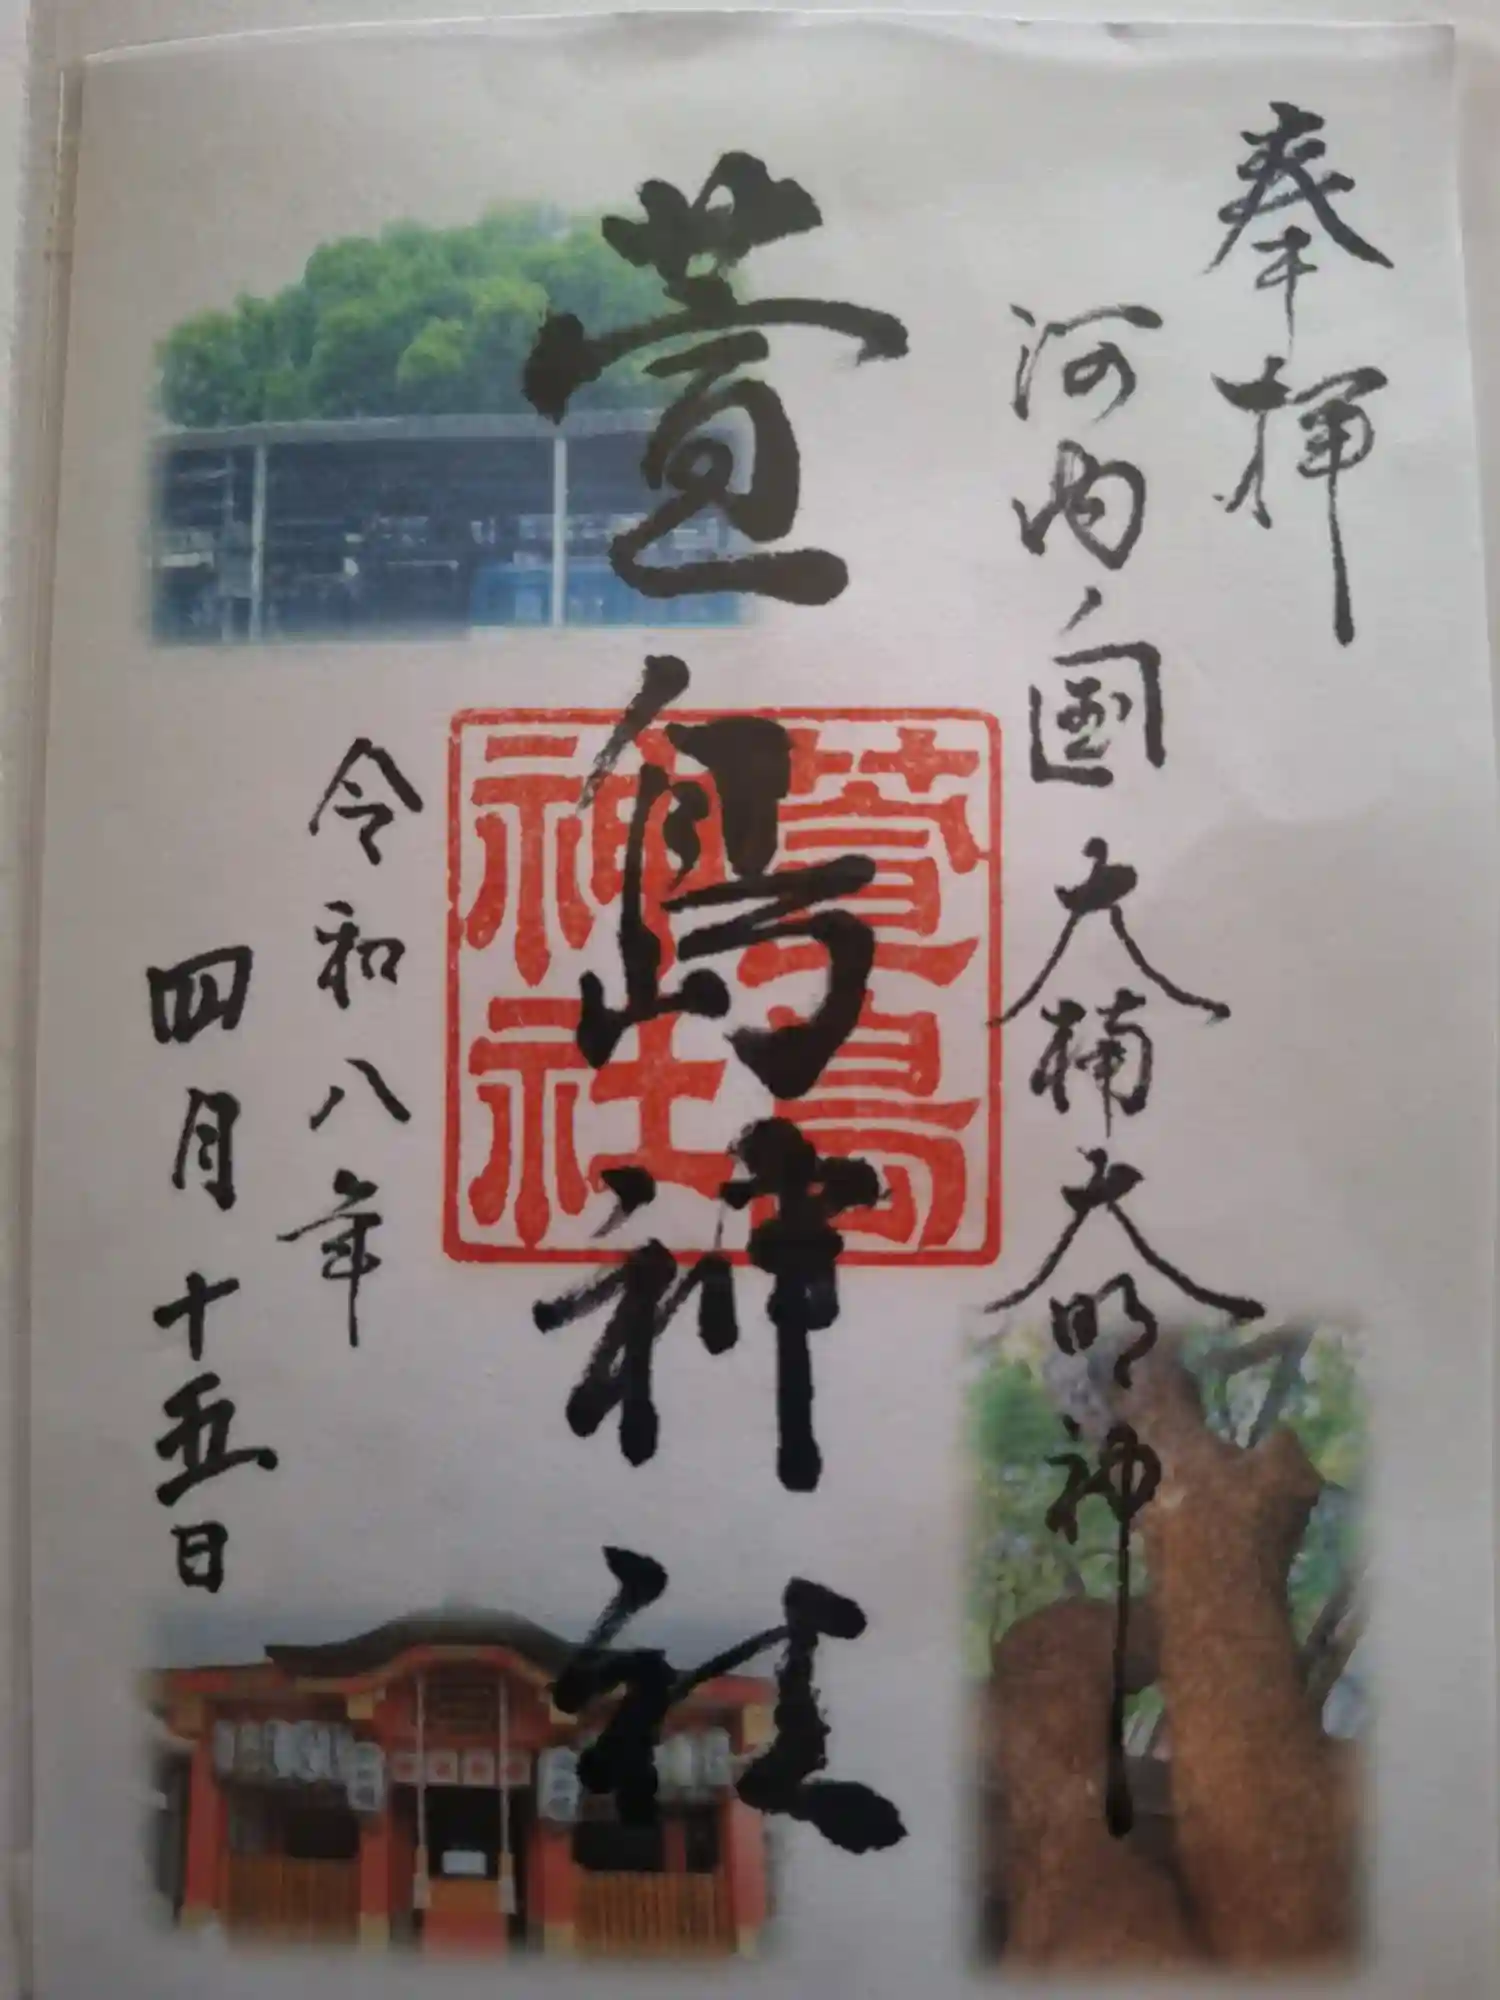 奉拝
河内国 大楠大明神
萱島神社
萱島
神社
令和八年
四月十五日